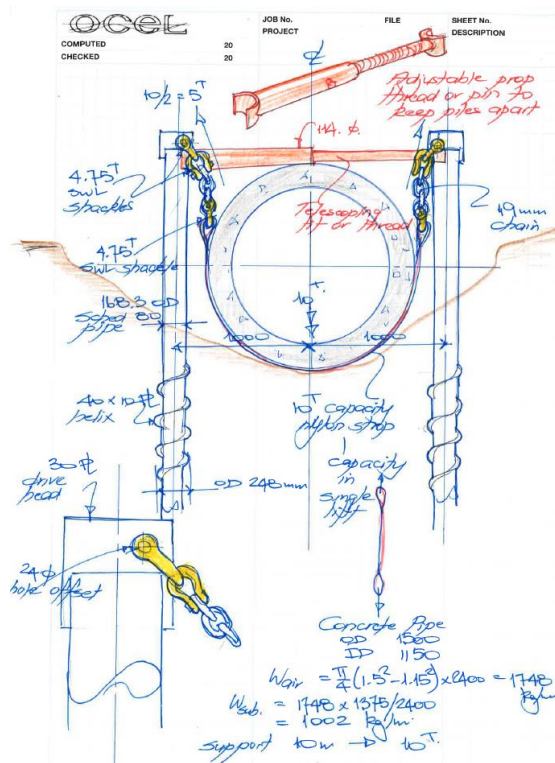 OCEL
JOB No. FILE SHEET No.
PROJECT DESCRIPTION
COMPUTED 20
CHECKED 20
10/2 = 5T
Adjustable prop
thread or pin to
keep piles apart
114. φ.
4.75T
SWL
shackles
Telescoping
fit or thread
19mm
chain
4.75T
SWL shackle
10T.
168.3 OD
Sched 80
pipe
1000 1000
40 x 12 PL
helix
10T capacity
nylon strop
capacity
in
single
lift
30 PL
drive
head
OD 248mm
24 φ
hole offset
Concrete Pipe
OD 1500
ID 1150
Wair = π/4 (1.5² - 1.15²) x 2400 = 1748
kg/m
Wsub. = 1748 x 1375/2400
= 1002 kg/m.
support 10m → 10T.